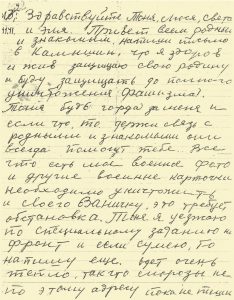 Здравствуйте Тоня, Люся, Света
и Эля Привет всем родным
и знакомым напиши письмо
в Камышин, что я здоров
и жив защищаю свою родину
и буду защищать до полного
уничтожения фашизма).
Тоня будь горда за меня и
если что, то держи связь с
родными и знакомыми они
всегда помогут тебе. Все
что есть мое военное фото
и другие военные карточки
необходимо уничтожить
и своего Ваничку, это требует
обстановка. Тоня я уезжаю
по специальному заданию на
фронт и если сумею, то
напишу еще. будет очень
тепло, так что морозы не
по этому адресу пока не пиши